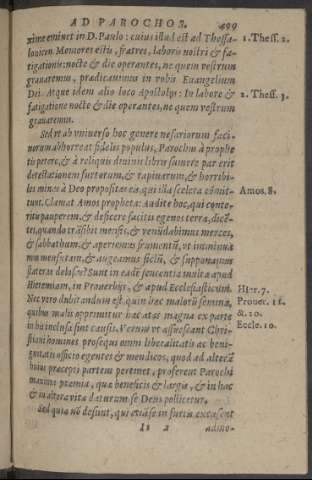 AD PAROCHOS. 499
xime eminet in D. Paulo: cuius illud est ad Thessa- 1. Thess. 2.
lonicen. Memores estis, fratres, laboris nostri & fa-
tigationis: nocte & die operantes, ne quem vestrum
grauaremus, prædicauimus in vobis Euangelium
Dei. Atque idem alio loco Apostolus: In labore & 2. Thess. 3.
fatigatione nocte & die operantes, ne quem vestrum
grauaremus.
Sed vt ab vniuerso hoc genere nefariorum faci-
norum abhorreat fidelis populus, Parochũ à prophe
tis petere, & à reliquis diuinis libris sumere par erit
detestationem furtorum, & rapinarum, & horribi-
les minas à Deo propositas eis, qui illa scelera cõmit-
tunt. Clamat Amos propheta: Audite hoc, qui conte- Amos. 8.
ritis pauperem, & deficere facitis egenos terræ, dicẽ-
tes, quando trãsibit mensis, & venũdabimus merces,
& sabbathum, & aperiemus frumentũ, vt imminua
mus mensuram, & augeamus siclũ, & supponamus
stateras dolosas? Sunt in eadẽ sententia multa apud
Hieremiam, in Prouerbiis, & apud Ecclesiasticum. Hier. 7.
Nec vero dubitandum est, quin hæc malorũ semina, Prouer. 21.
quibus malis opprimitur hæc ætas magna ex parte & 20.
in his inclusa sint causis. Verum vt assuescant Chri- Eccle. 10.
stiani homines prosequi omni liberalitatis ac beni-
gnitatis officio egentes & mendicos, quod ad alterã
huius præcepti partem pertinet, proferent Parochi
maxima præmia, quæ beneficis & largis, & in hoc
& in altera vita daturum se Deus pollicetur.
Sed quia nõ desunt, qui etiã se in furtis excusent
Ii 2 admo-